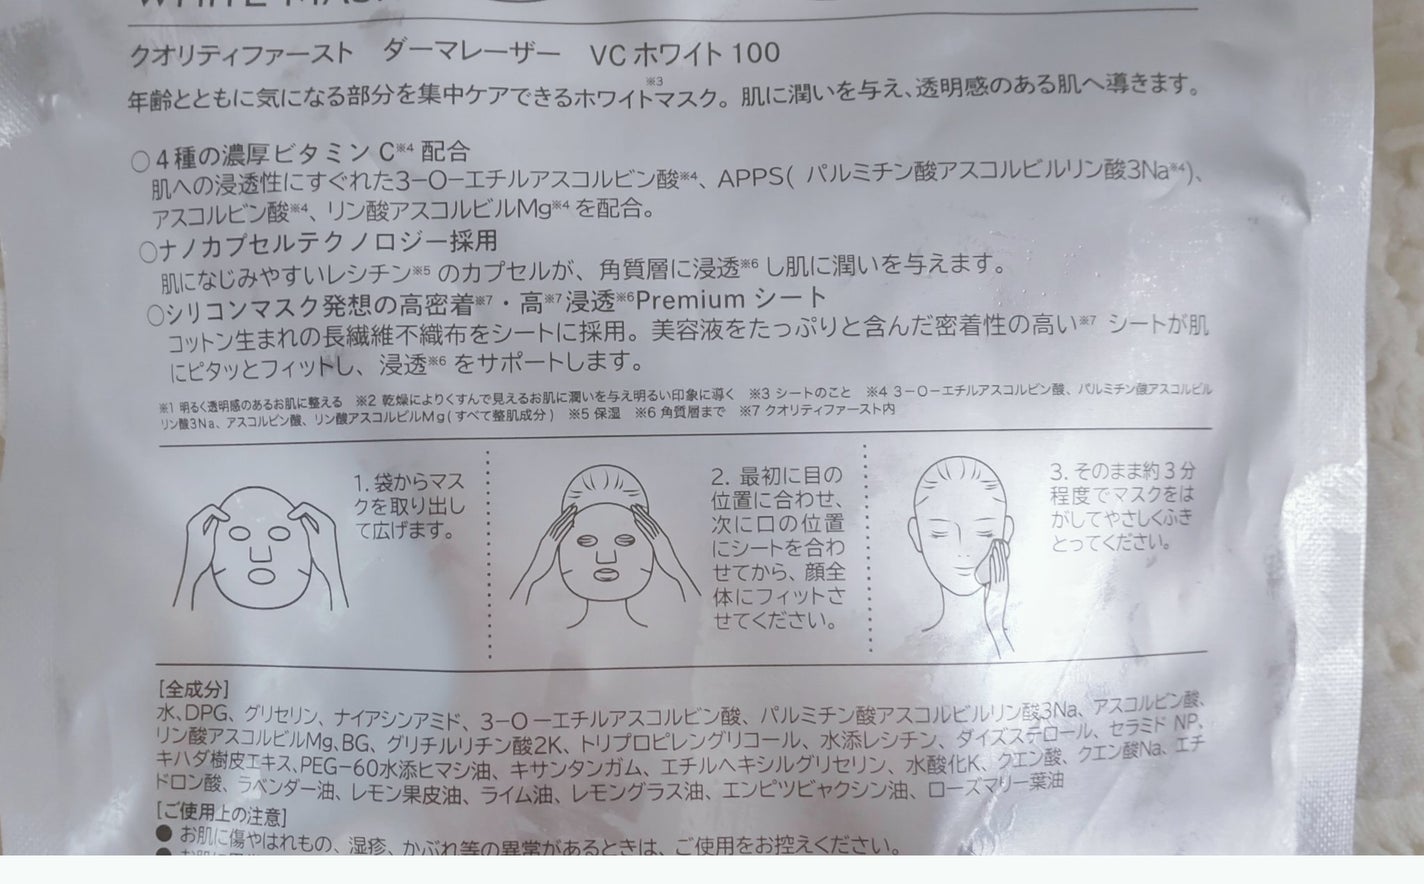 WHITE MASK
クオリティファースト ダーマレーザー VCホワイト100
年齢とともに気になる部分を集中ケアできるホワイトマスク※3。肌に潤いを与え、透明感のある肌へ導きます。
○4種の濃厚ビタミンC※4 配合
肌への浸透性にすぐれた3-O-エチルアスコルビン酸※4、APPS( パルミチン酸アスコルビルリン酸3Na※4)、
アスコルビン酸※4、リン酸アスコルビルMg※4 を配合。
○ナノカプセルテクノロジー採用
肌になじみやすいレシチン※5 のカプセルが、角質層に浸透※6 し肌に潤いを与えます。
○シリコンマスク発想の高密着※7・高※7浸透※6Premium シート
コットン生まれの長繊維不織布をシートに採用。美容液をたっぷりと含んだ密着性の高い※7 シートが肌
にピタッとフィットし、浸透※6 をサポートします。
※1 明るく透明感のあるお肌に整える ※2 乾燥によりくすんで見えるお肌に潤いを与え明るい印象に導く ※3 シートのこと ※4 3-O-エチルアスコルビン酸、パルミチン酸アスコルビル
リン酸3Na、アスコルビン酸、リン酸アスコルビルMg(すべて整肌成分) ※5 保湿 ※6 角質層まで ※7 クオリティファースト内
1. 袋からマス
クを取り出し
て広げます。
2. 最初に目の
位置に合わせ、
次に口の位置
にシートを合わ
せてから、顔全
体にフィットさ
せてください。
3. そのまま約3分
程度でマスクをは
がしてやさしくふき
とってください。
[全成分]
水、DPG、グリセリン、ナイアシンアミド、3-O-エチルアスコルビン酸、パルミチン酸アスコルビルリン酸3Na、アスコルビン酸、
リン酸アスコルビルMg、BG、グリチルリチン酸2K、トリプロピレングリコール、水添レシチン、ダイズステロール、セラミド NP、
キハダ樹皮エキス、PEG-60水添ヒマシ油、キサンタンガム、エチルヘキシルグリセリン、水酸化K、クエン酸、クエン酸Na、エチ
ドロン酸、ラベンダー油、レモン果皮油、ライム油、レモングラス油、エンピツビャクシン油、ローズマリー葉油
[ご使用上の注意]
● お肌に傷やはれもの、湿疹、かぶれ等の異常があるときは、ご使用をお控えください。